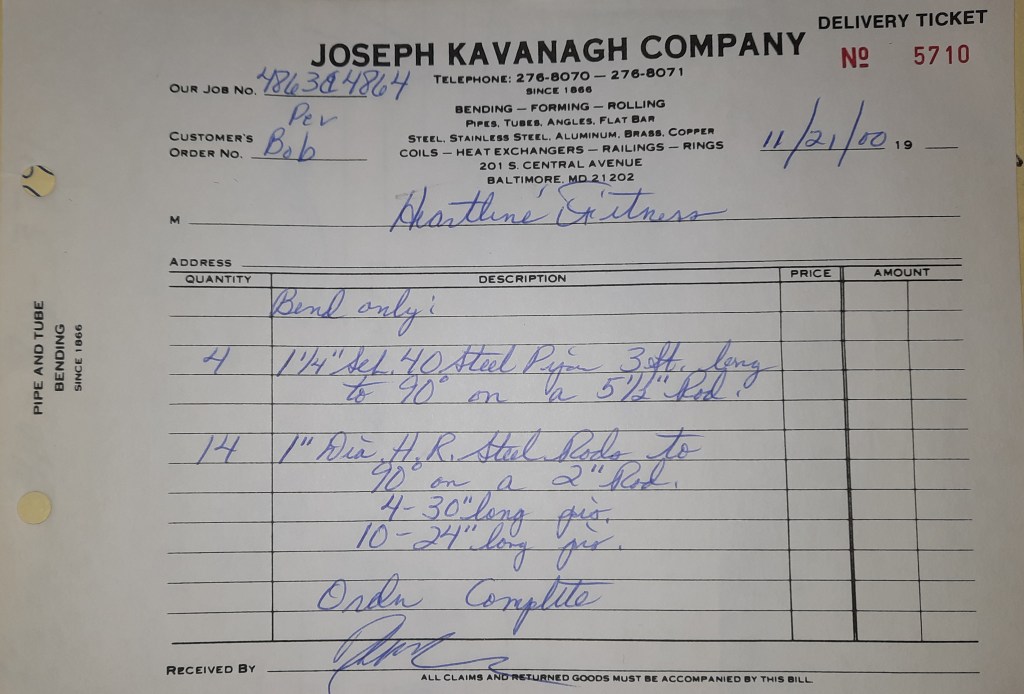 DELIVERY TICKET
JOSEPH KAVANAGH COMPANY
No 5710
TELEPHONE: 276-8070 — 276-8071
SINCE 1866
OUR JOB NO. 4863 & 4864
BENDING — FORMING — ROLLING
PIPES, TUBES, ANGLES, FLAT BAR
Per
CUSTOMER'S
ORDER NO. Bob
STEEL, STAINLESS STEEL, ALUMINUM, BRASS, COPPER
COILS — HEAT EXCHANGERS — RAILINGS — RINGS
11/21/00 19
201 S. CENTRAL AVENUE
BALTIMORE, MD 21202
M Heartline Fitness
ADDRESS
QUANTITY DESCRIPTION PRICE AMOUNT
Bend only:
4 1 1/4" Sch. 40 Steel Pipe 3 ft. long
to 90° on a 5 1/2" Rad.
14 1" Dia. H.R. Steel Rods to
90° on a 2" Rad.
4-30" long pcs.
10-24" long pcs.
Order Complete
RECEIVED BY
ALL CLAIMS AND RETURNED GOODS MUST BE ACCOMPANIED BY THIS BILL.
PIPE AND TUBE
BENDING
SINCE 1866